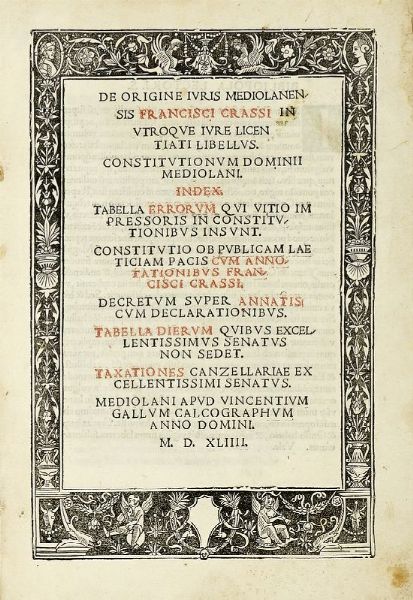 DE ORIGINE IVRIS MEDIOLANEN-
SIS FRANCISCI CRASSI IN
VTROQVE IVRE LICEN
TIATI LIBELLUS.
CONSTITVTIONVM DOMINII
MEDIOLANI.
INDEX.
TABELLA ERRORVM QVI VITIO IM
PRESSORIS IN CONSTITV-
TIONIBVS INSVNT.
CONSTITVTIO OB PVBLICAM LAE
TICIAM PACIS CVM ANNO-
TATIONIBVS FRAN-
CISCI CRASSI.
DECRETVM SVPER ANNATIS
CVM DECLARATIONIBVS.
TABELLA DIERVM QVIBVS EXCEL-
LENTISSIMVS SENATVS
NON SEDET.
TAXATIONES CANZELLARIAE EX
CELLENTISSIMI SENATVS.
MEDIOLANI APVD VINCENTIVM
GALLVM CALCOGRAPHVM
ANNO DOMINI.
M. D. XLIIII.